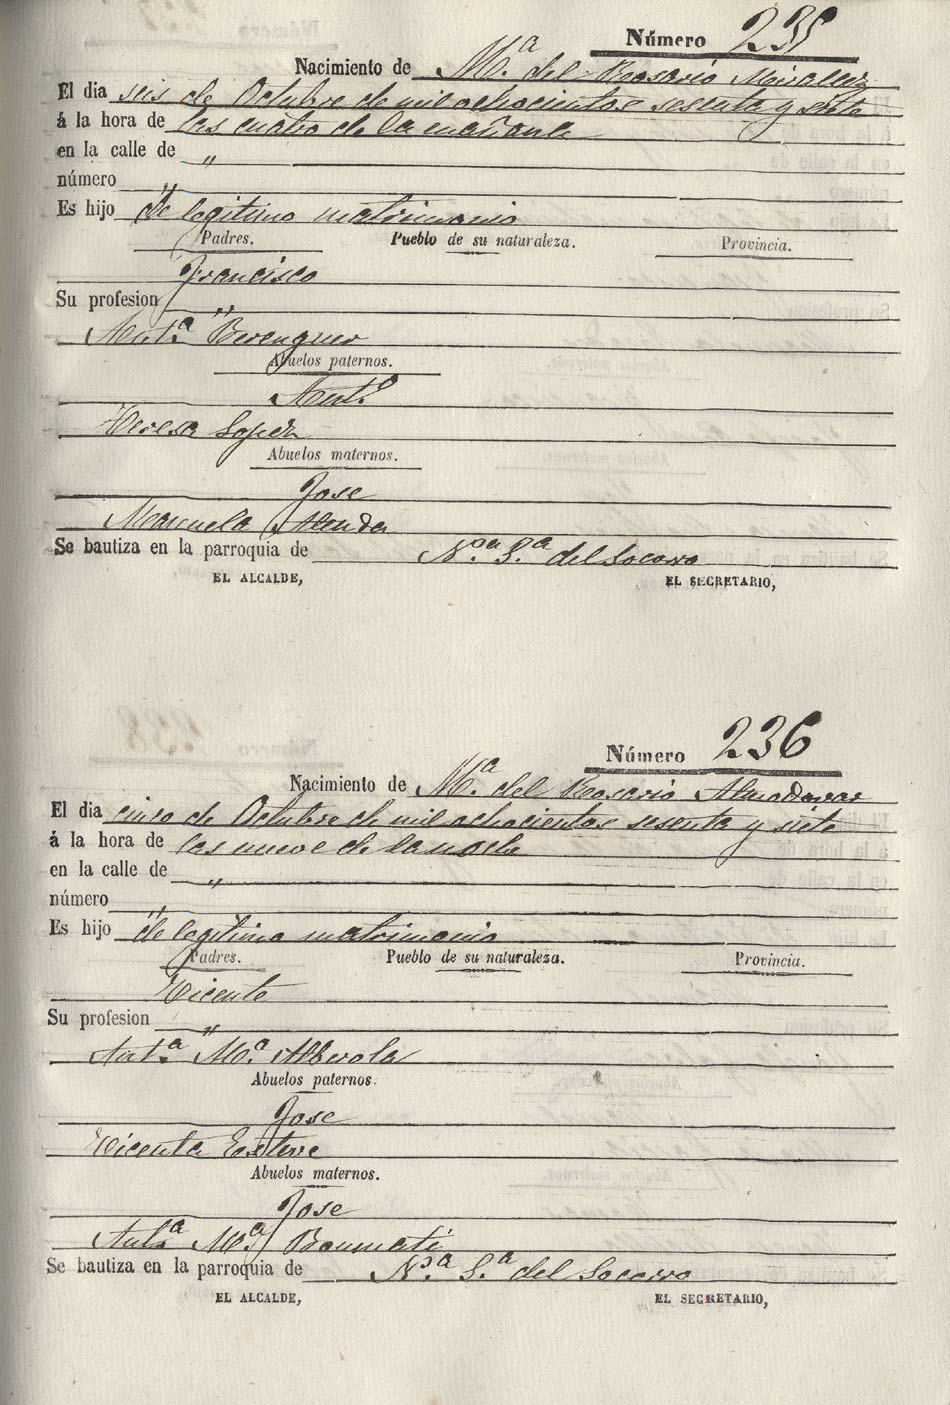 Número 235
Nacimiento de Mª. del Rosario Miralles
El dia seis de Octubre de mil ochocientos sesenta y siete
á la hora de las cuatro de la mañana
en la calle de "
número "
Es hijo de legitimo matrimonio
Padres. Pueblo de su naturaleza. Provincia.
Francisco
Su profesion "
Antª Berenguer
Abuelos paternos.
Antº
Teresa Lopez
Abuelos maternos.
Jose
Manuela Alenda
Se bautiza en la parroquia de Nª. Sª. del Socorro
EL ALCALDE, EL SECRETARIO,
Número 236
Nacimiento de Mª. del Rosario Almodovar
El dia cinco de Octubre de mil ochocientos sesenta y siete
á la hora de las nueve de la noche
en la calle de "
número "
Es hijo de legitimo matrimonio
Padres. Pueblo de su naturaleza. Provincia.
Vicente
Su profesion "
Antª Mª. Alberola
Abuelos paternos.
Jose
Vicenta Esteve
Abuelos maternos.
Jose
Antª Mª
Se bautiza en la parroquia de Nª. Sª. del Socorro
EL ALCALDE, EL SECRETARIO,